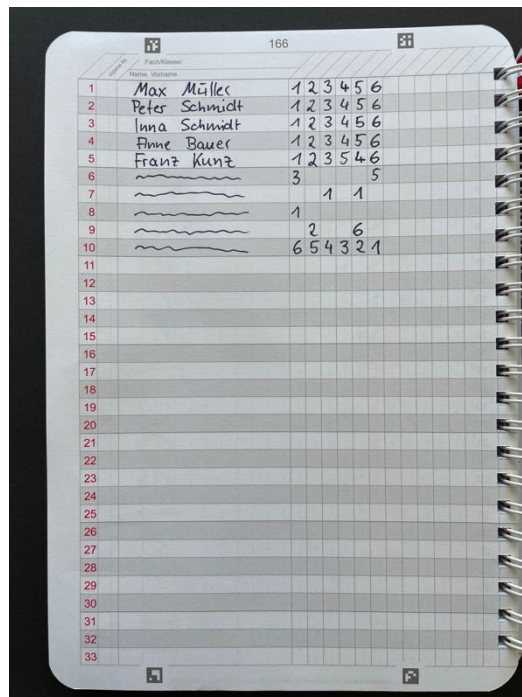 166
eigene Nr.
Fach/Klasse:
Name, Vorname
1 Max Müller 1 2 3 4 5 6
2 Peter Schmidt 1 2 3 4 5 6
3 Inna Schmidt 1 2 3 4 5 6
4 Anne Bauer 1 2 3 4 5 6
5 Franz Kunz 1 2 3 5 4 6
6 3 5
7 1 1
8 1
9 2 6
10 6 5 4 3 2 1
11
12
13
14
15
16
17
18
19
20
21
22
23
24
25
26
27
28
29
30
31
32
33